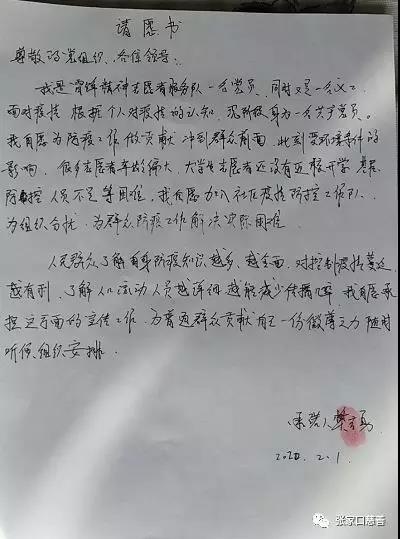 请愿书
尊敬的党组织、各位领导:
我是雷锋精神志愿者服务队一名党员,同时又是一名义工
面对疫情 根据个人对疫情的认知,现阶段身为一名共产党员。
我自愿为防疫工作做贡献 冲到群众前面,此刻受环境条件的
影响,很多志愿者年龄偏大,大学生志愿者还没有开学 基层
防控 人员不足等困难,我自愿加入社区疫情防控工作队,
为组织分忧,为群众防疫工作解决实际困难.
人民群众了解自身防疫知识越多、越全面,对控制疫情蔓延
越有利,了解人口流动人员越详细越能减少传播几率,我自愿承
担这方面的宣传工作,为普通群众贡献自己一份微薄之力 随时
听候组织安排.
承诺人
2020.2.1
张家口慈善